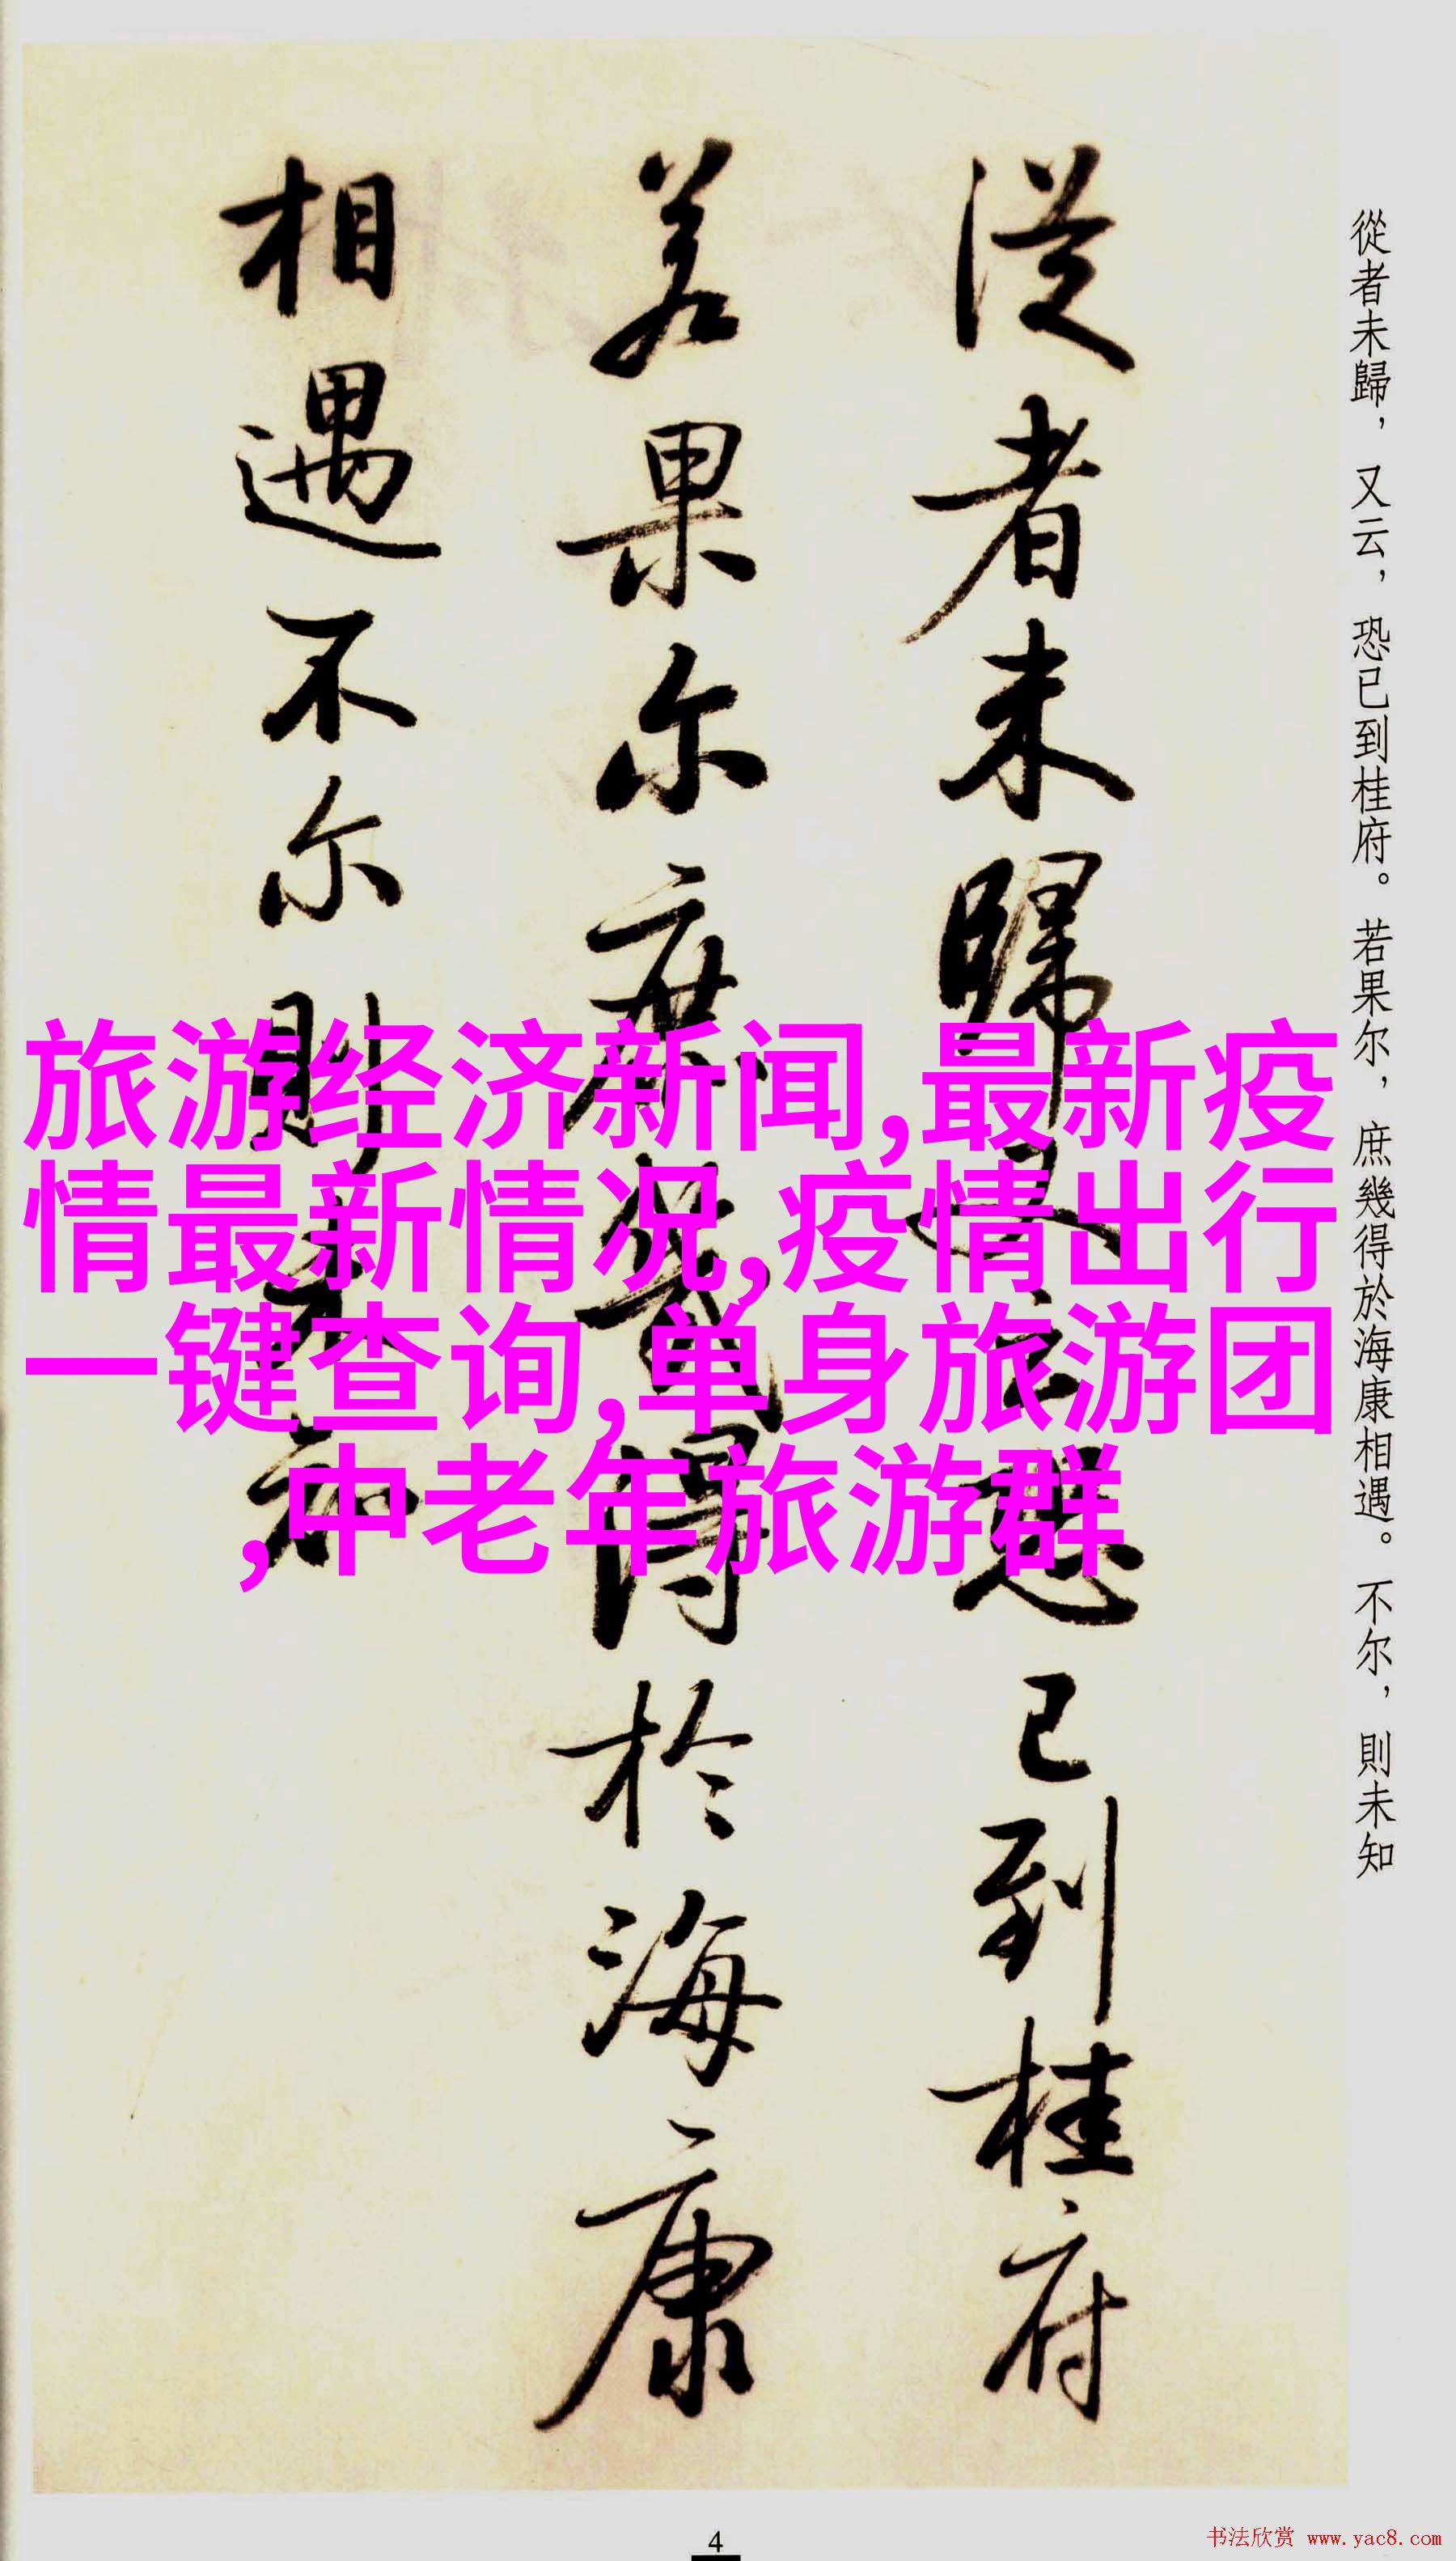 從者未歸又云恐已到桂府
若果尔庶幾得於海康
相遇不尔則未知
從者未歸，又云，恐已到桂府。若果尔，庶幾得於海康相遇。不尔，則未知
旅游经济新闻,最新疫
情最新情况,疫情出行
一键查询,单身旅游团
,中老年旅游群
4
书法欣赏 www.yac8.com